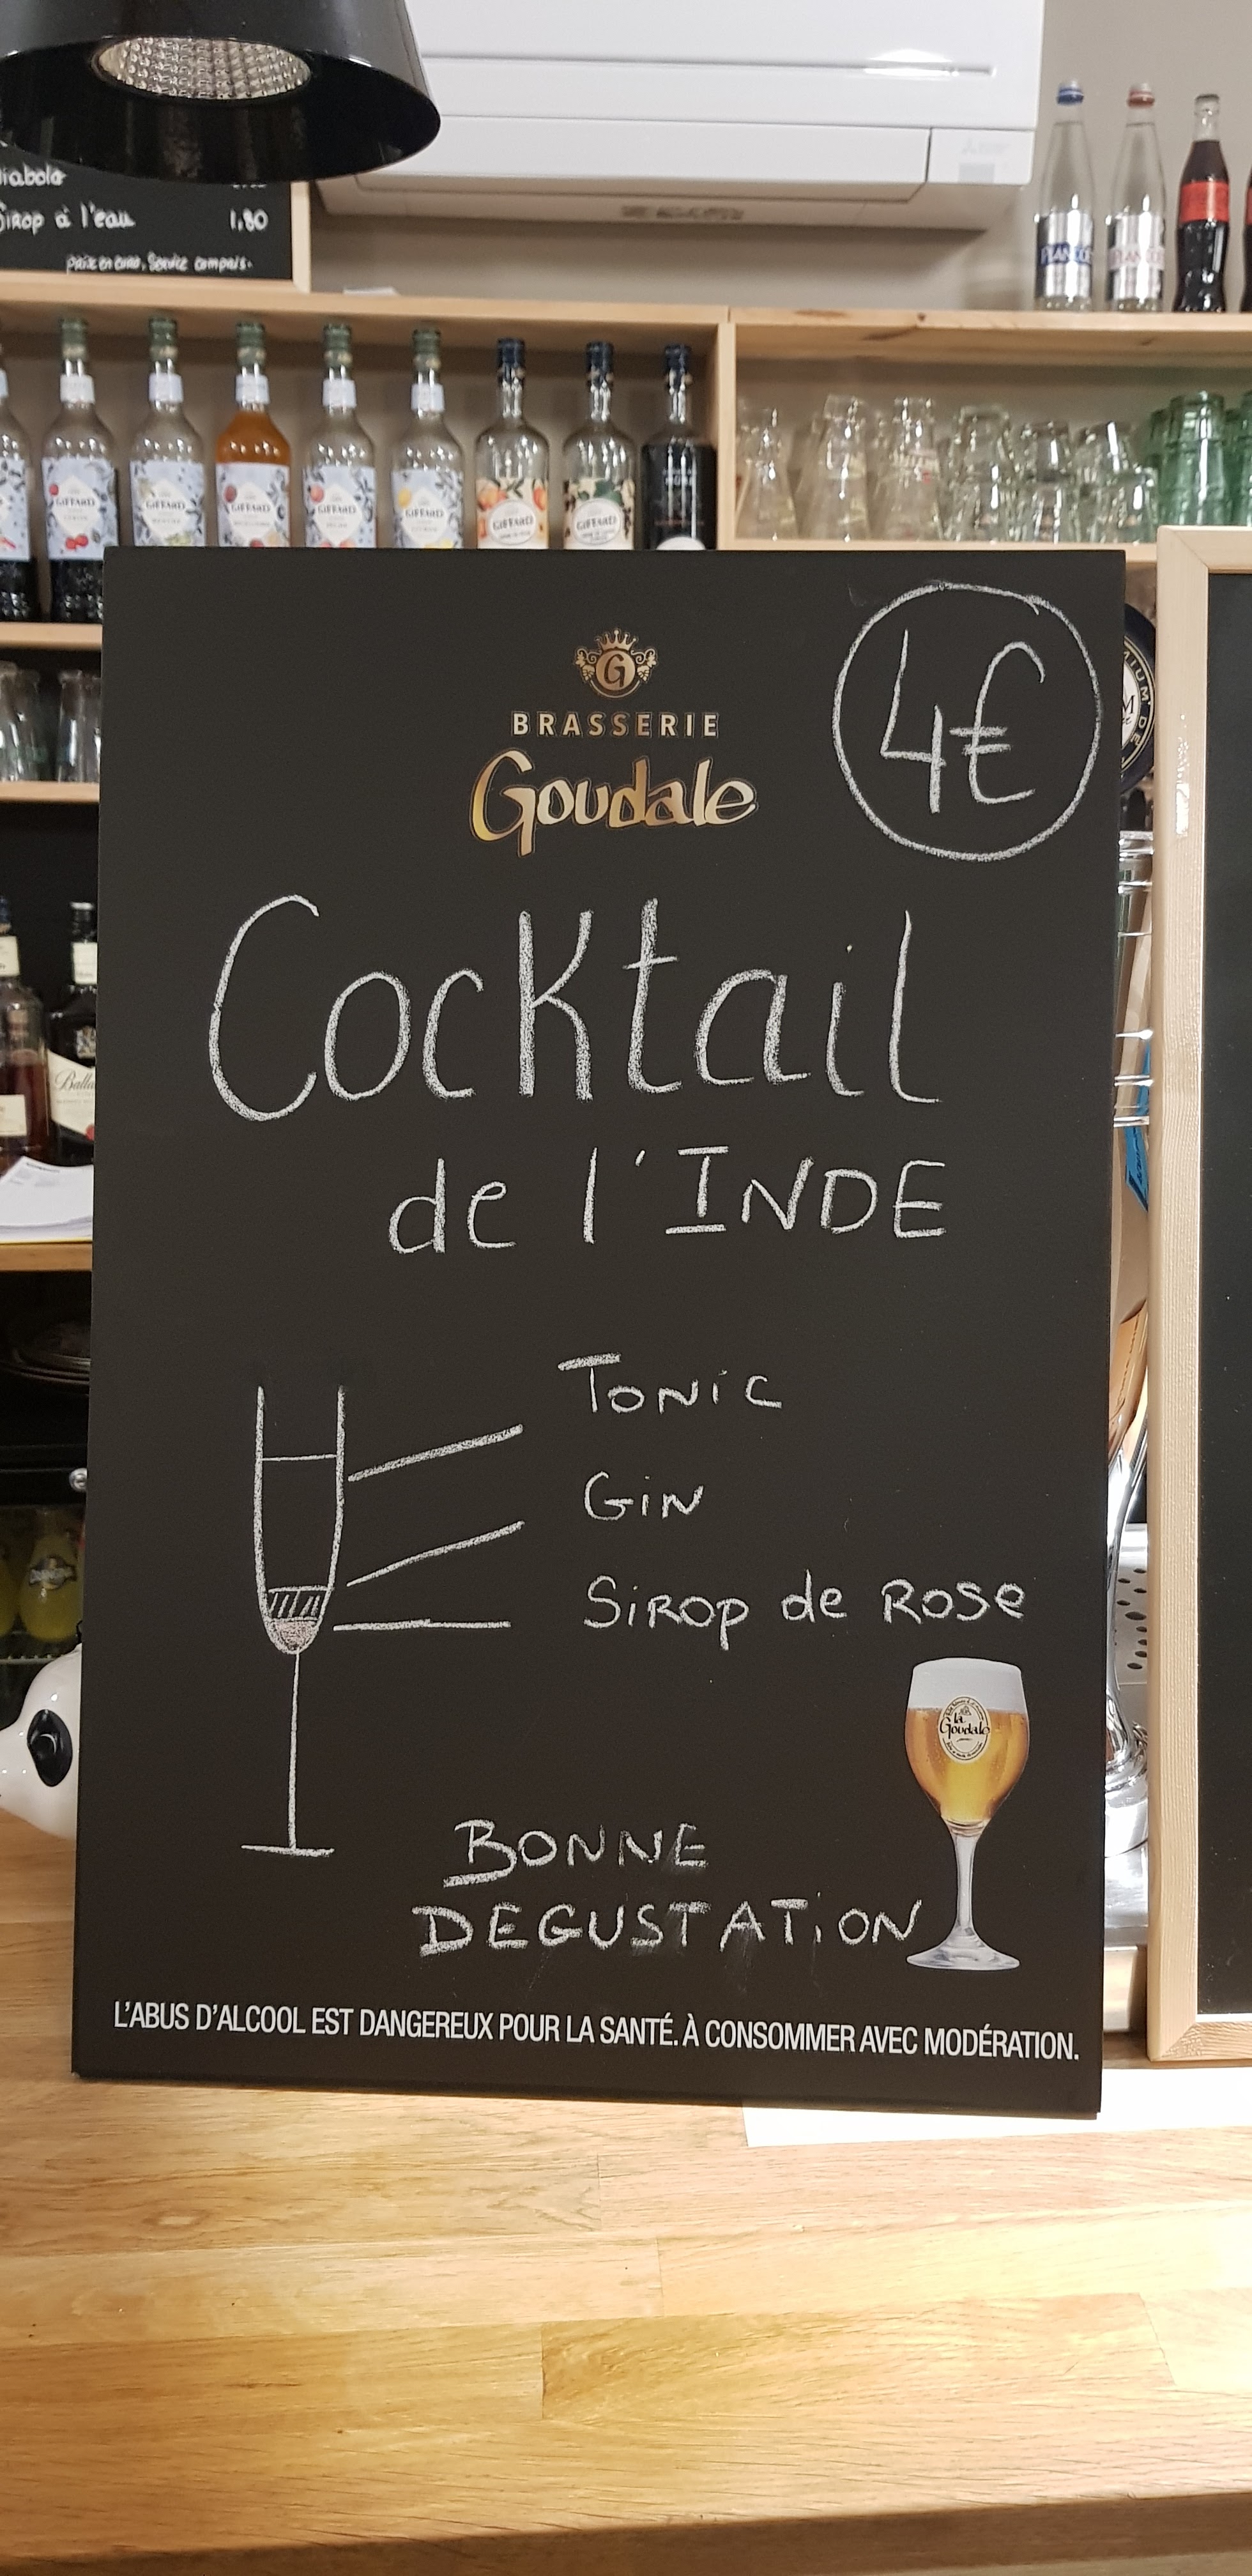 Sirop à l'eau 1,80
prix en euro, Service compris.
GIFFARD
GIFFARD
GIFFARD
GIFFARD
GIFFARD
GIFFARD
GIFFARD
G
BRASSERIE
Goudale
4€
Cocktail
de l'INDE
Tonic
Gin
Sirop de Rose
la
Goudale
BONNE
DEGUSTATION
L'ABUS D'ALCOOL EST DANGEREUX POUR LA SANTÉ. À CONSOMMER AVEC MODÉRATION.